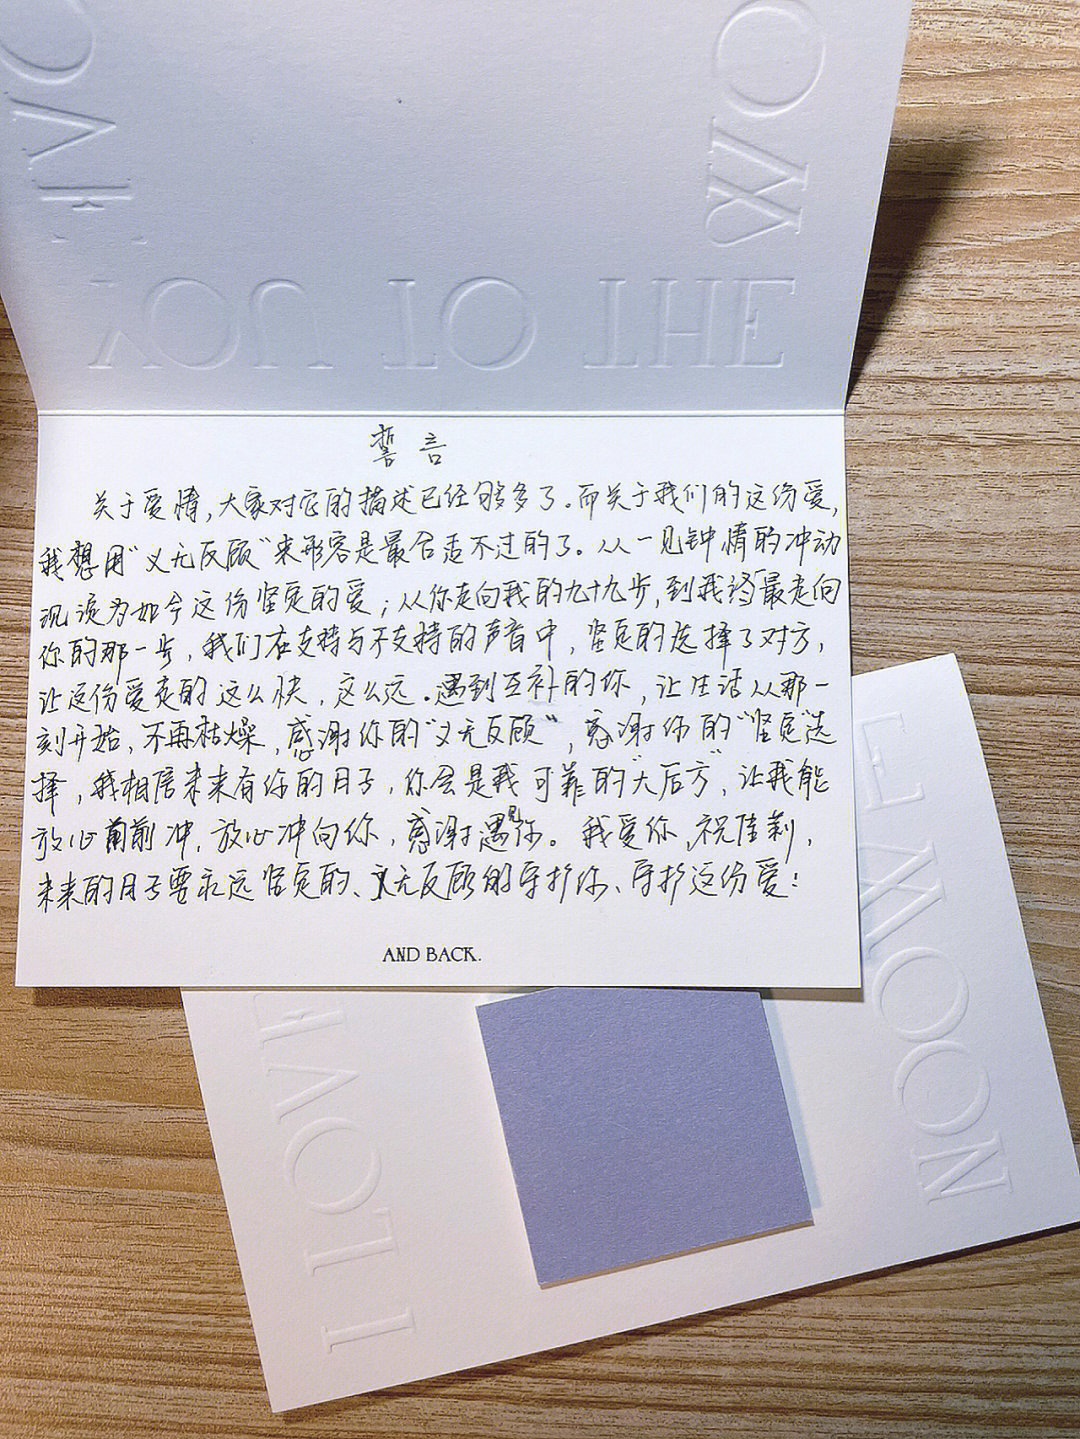 LOVE
YOU TO THE
MOO
誓言
关于爱情,大家对它的描述已经够多了.而关于我们的这份爱,
我想用"义无反顾"来形容是最合适不过的了。从一见钟情的冲动
沉淀为如今这份坚定的爱;从你走向我的九十九步,到我最走向
你的那一步,我们在支持与不支持的声音中,坚定的选择了对方,
让这份爱走的这么快,这么远.遇到互补的你,让生活从那一
刻开始,不再枯燥,感谢你的"义无反顾",感谢你的"坚定"选
择,我相信未来有你的日子,你会是我可靠的"大后方",让我能
放心前冲,放心冲向你,感谢遇见你。我爱你,祝佳莉,
未来的日子要永远坚定的、义无反顾的守护你、守护这份爱!
AND BACK.
I LOVE
E MOON